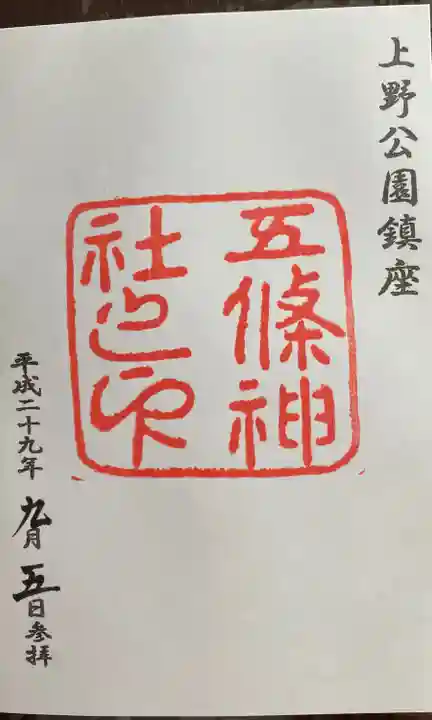 上野公園鎮座
五條神
社之印
平成二十九年九月五日参拝